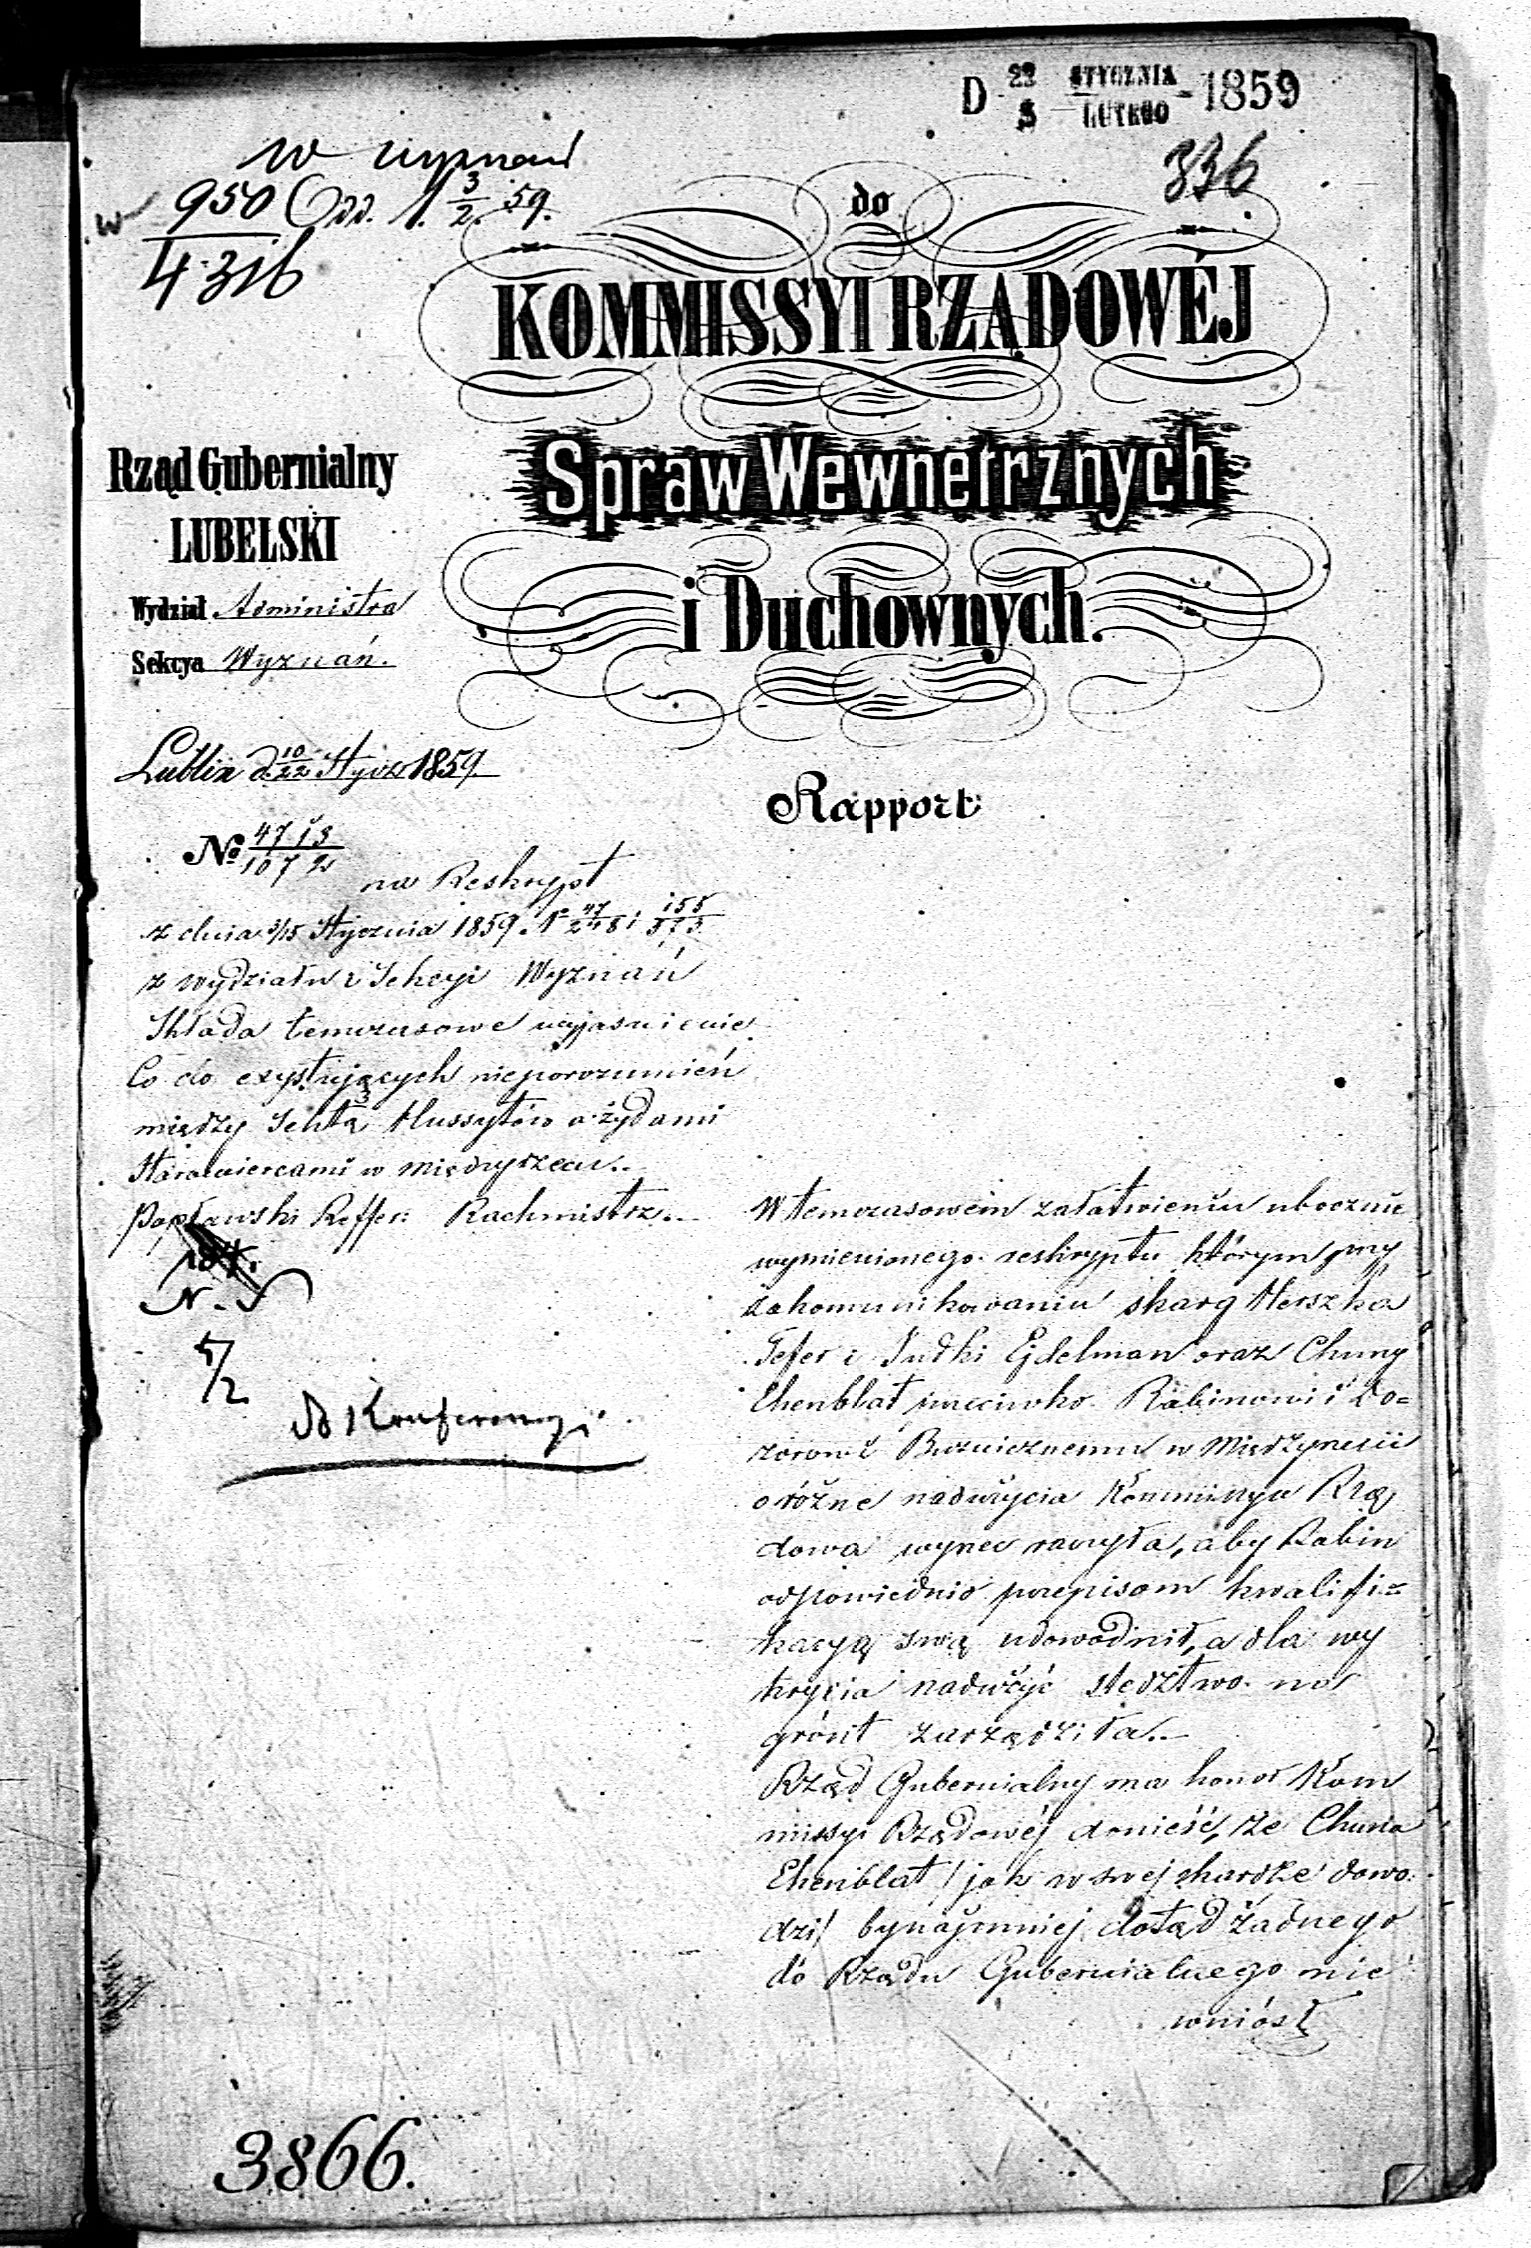 D 22 STYCZNIA 1859
3 LUTEGO
336
w wyznań
w 950 Odd. 1. 3/2 59.
4316
do
KOMMISSYI RZĄDOWÉJ
Spraw Wewnetrznych
i Duchownych.
Rząd Gubernialny
LUBELSKI
Wydział Administra
Sekcya Wyznań.
Lublin d. 10/22 Stycz 1859
Rapport
No 4713/1072
na Reskrypt
z dnia 3/15 Stycznia 1859 N 47/248 i 155/573
z wydziału i Sekcyi Wyznań
Składa temczasowe wyjasnienie
Co do exystujących nieporozumień
między Sektą Hussytów a żydami
Starowiercami w Międzyrzecu.
Popławski Reffer: Rachmistrz
N. S
5/2
do Konferencyi
W temczasowém załatwieniu ubocznie
wymienionego reskryptu którym przy
zakomunikowaniu skarg Herszka
Tefer i Judki Ejdelman oraz Chuny
Ehenblat przeciwko Rabinowi i Do=
zorowi Boznicznemu w Międzyrzecu
o różne nadużycia Kommissya Rzą
dowa wyrzec raczyła, aby Rabin
odpowiednio przepisom kwalifi=
kacyą swą udowodnił, a dla wy
krycia nadużyć sledztwo na
grónt zarządziła.
Rząd Gubernialny ma honor Kom
missyi Rządowéj donieść, że Chuna
Ehenblat / jak w swej skardze dowo
dzi / bynajmniej dotąd żadnego
do Rządu Gubernialnego nie
wniósł
3866.